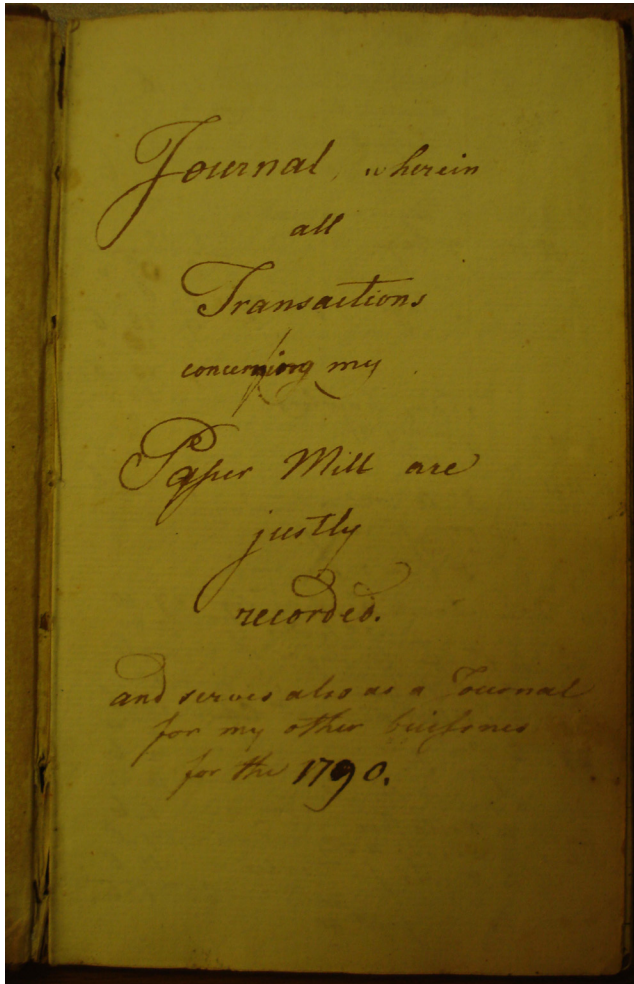 Journal, wherein
all
Transactions
concerning my
Paper Mill are
justly
recorded.
and serves also as a Journal
for my other
for the 1790.